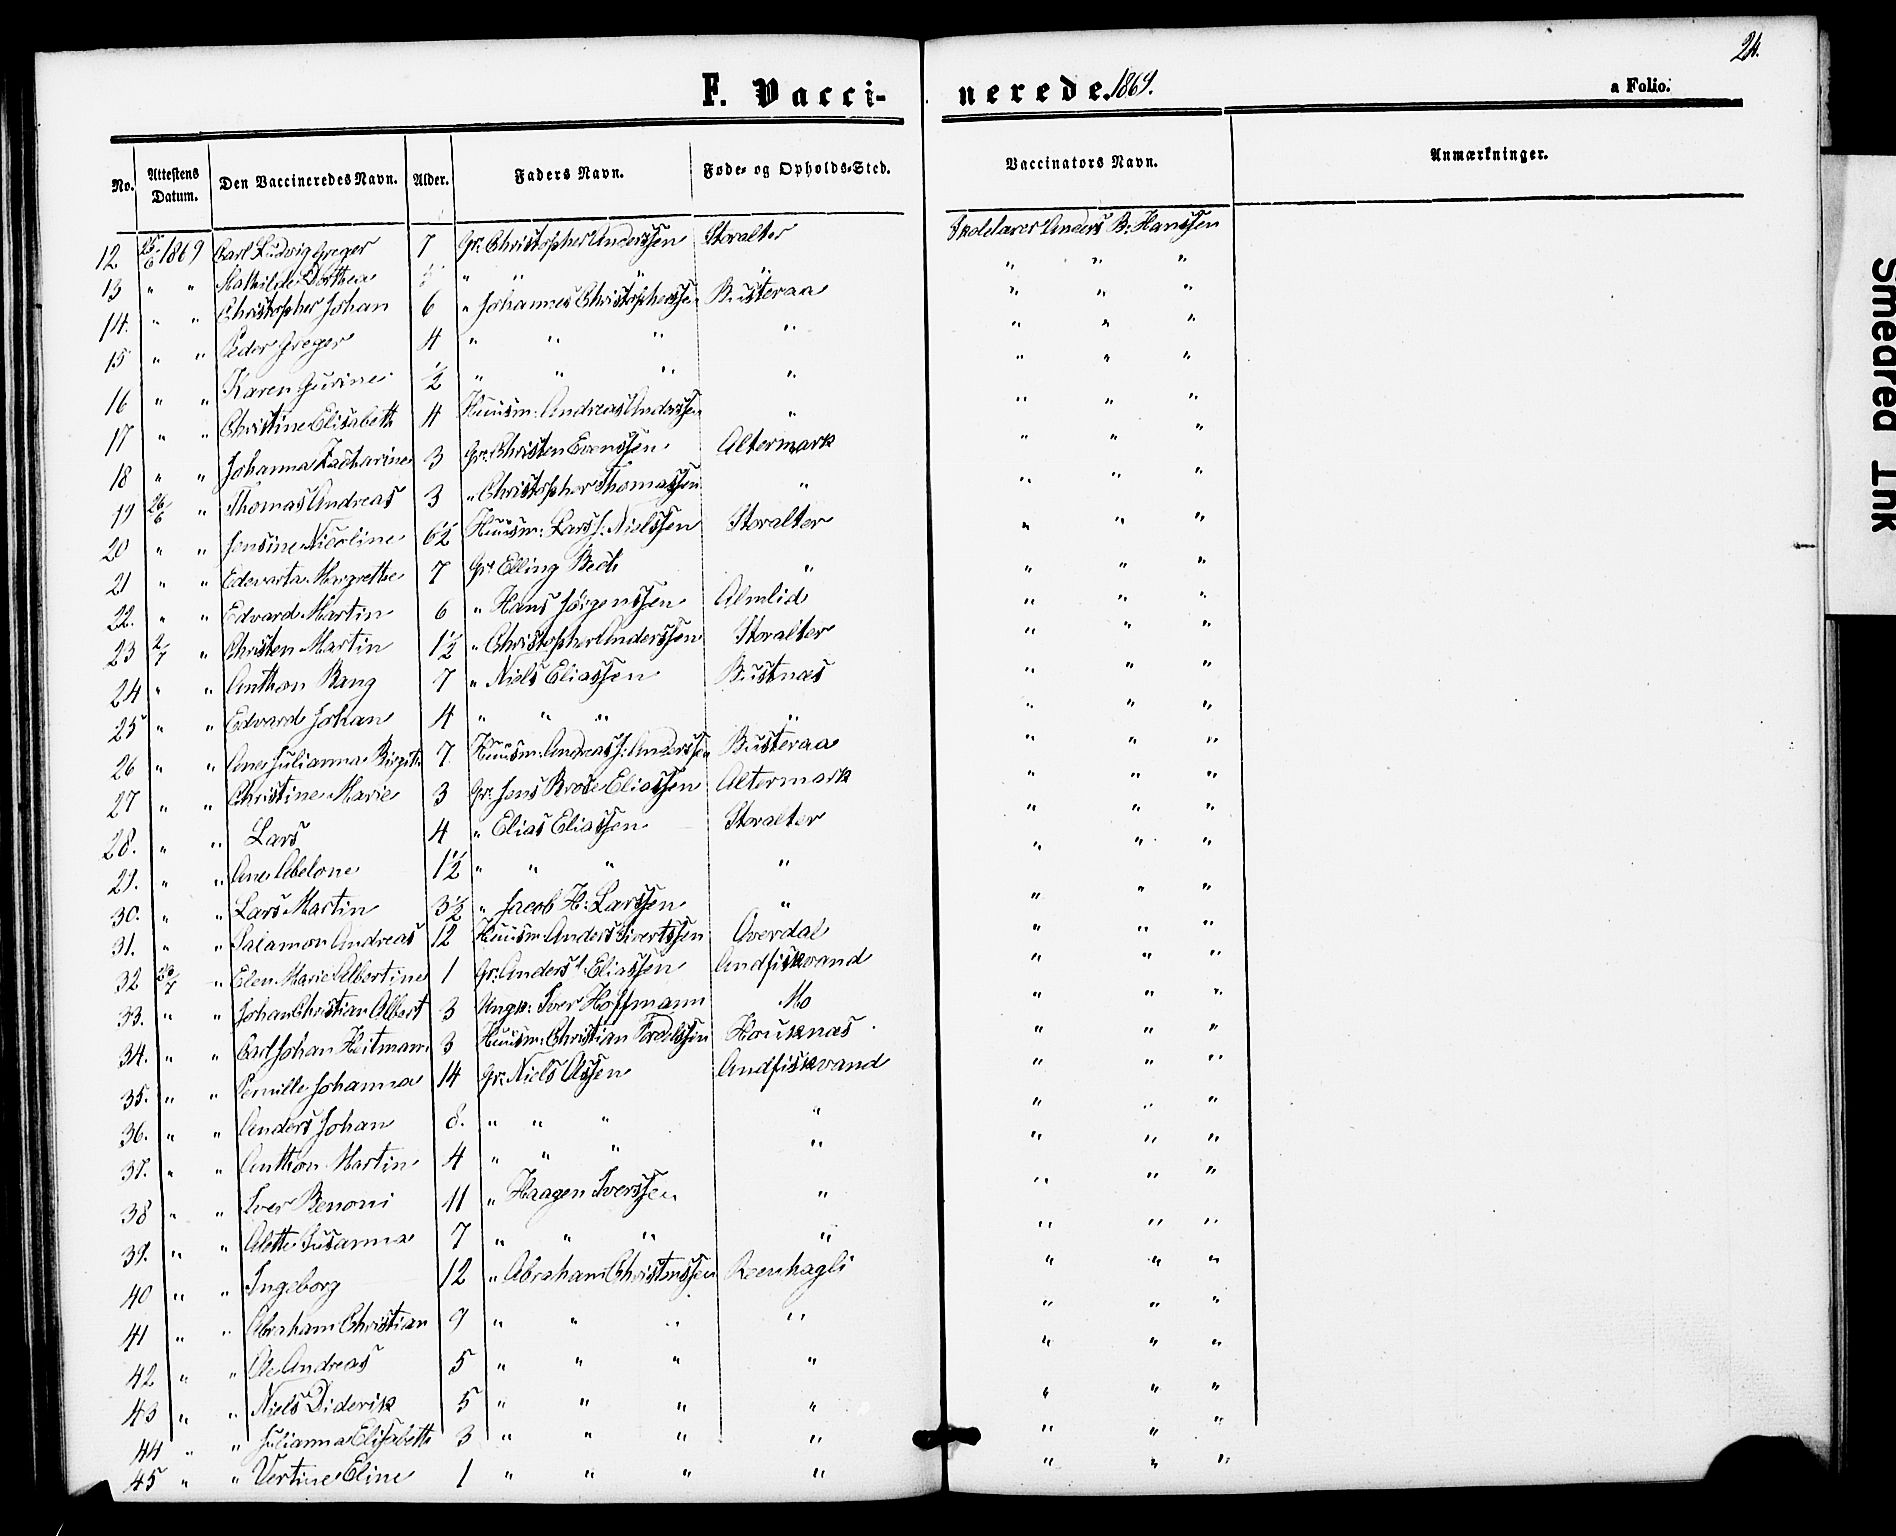 24.
F. Vaccinerede. 1869.
a Folio.
No. Attestens Datum. Den Vaccineredes Navn. Alder. Faders Navn. Føde- og Opholds-Sted. Vaccinators Navn. Anmærkninger.
12 25/6 1869 Carl Ludvig Greger 7 Gr. Christopher Anderssen Storalter Skolelærer Anders B. Hanssen
13 " " Mathilde Dorthea " " " " " " "
14. " " Christopher Johan 6 " Johannes Christopherssen Busteraa " " "
15 " " Peder Greger 4 " " " " " " "
16 " " Karen Gurine 1/2 " " " " " " "
17 " " Christine Elisabeth 4 Huusm: Andreas Anderssen " " " "
18 " " Johanna Katharine 3 Gr: Christen Evenssen Altermark " " "
19 26/6 " Thomas Andreas 3 " Christopher Thomassen " " " "
20 " " Jensine Nicoline 6 1/2 Huusm: Lars J: Nielssen Storalter " " "
21 " " Edvarta Margrethe 7 Gr. Elling Bech " " " "
22. " " Edvard Martin 6 " Hans Jörgenssen Almlid " " "
23 2/7 " Christen Martin 1 1/2 " Christopher Anderssen Storalter " " "
24 " " Anthon Bang 7 " Niels Eliassen Bustnæs " " "
25 " " Edvard Johan 4 " " " " " " "
26 " " Ane Julianna Birgit 7. Huusm: Andreas J: Anderssen Busteraa " " "
27 " " Christine Marie 3 Gr. Jens Brose Eliassen Altermark " " "
28. " " Lars 4 " Elias Eliassen Storalter " " "
29. " " Ane Abelone 1 1/2 " " " " " " "
30. " " Lars Martin 3 1/2 " Jacob H: Larssen " " " "
31. " " Salamon Andreas 12 Huusm Anders Sivertssen Overdal " " "
32 23/7 " Elen Marie Albertine 1 Gr. Anders Eliassen Andfiskvand " " "
33. " " Johan Christian Albert 3 Ungk: Iver Hoffmann Mo " " "
34. " " Carl Johan Heitmann 3 Huusm: Christian Hauknæs " " "
35. " " Pernille Johanna 14 Gr. Niels Olssen Andfiskvand " " "
36. " " Anders Johan 8. " " " " " " "
37. " " Anthon Martin 4 " " " " " " "
38 " " Iver Benoni 11 " Haagen Iverssen " " " "
39. " " Alette Susanna 7 " " " " " " "
40 " " Ingeborg 12 " Abraham Christenssen " " "
41 " " Abraham Christian 9 " " " " " " "
42 " " Ole Andreas 5 " " " " " " "
43 " " Niels Diderik 5 " " " " " " "
44 " " Julianna Elisabeth 3 " " " " " " "
45 " " Vertine Eline 1 " " " " " " "
Smeared Ink